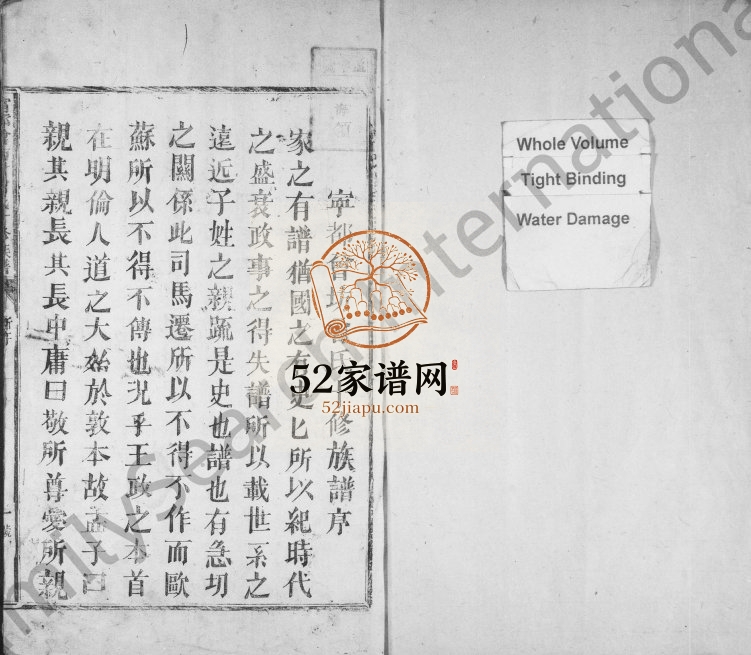 寧都
修族譜序
家之有譜猶國之有史匕所以紀時代
之盛衰政事之得失譜所以載世系之
遠近子姓之親疏是史也譜也有急切
之關係此司馬遷所以不得不作而歐
蘇所以不得不傳也況乎王政之本首
在明倫人道之大始於敦本故孟子曰
親其親長其長中庸曰敬所尊愛所親
Whole Volume
Tight Binding
Water Damage
52家谱网
52jiapu.com
milySearch International